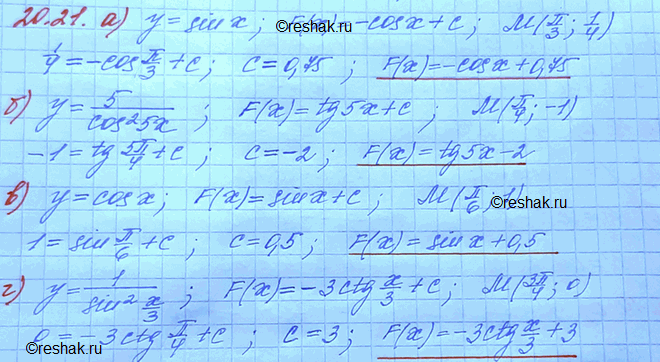 20.21. а) y = sin x; F(x) = -cos x + c; M(π/3; 1/4)
1/4 = -cos π/3 + c; c = 0,75; F(x) = -cos x + 0,75
б) y = 5/cos²5x; F(x) = tg5x + c; M(π/4; -1)
-1 = tg 5π/4 + c; c = -2; F(x) = tg5x - 2
©reshak.ru
в) y = cos x; F(x) = sin x + c; M(π/6; 1)
©reshak.ru
1 = sin π/6 + c; c = 0,5; F(x) = sin x + 0,5
г) y = 1/sin² x/3; F(x) = -3ctg x/3 + c; M(3π/4; 0)
0 = -3ctg π/4 + c; c = 3; F(x) = -3ctg x/3 + 3
©reshak.ru
©reshak.ru